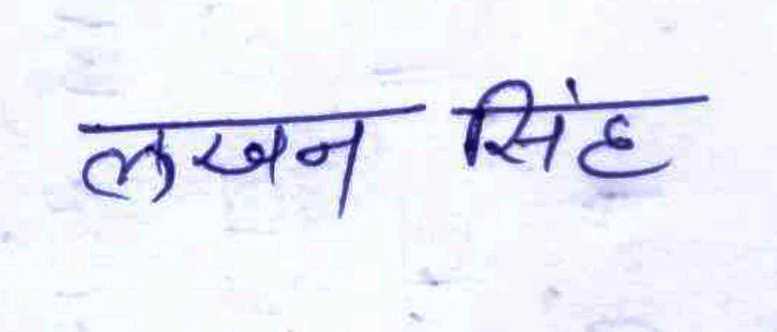 लखन सिंह